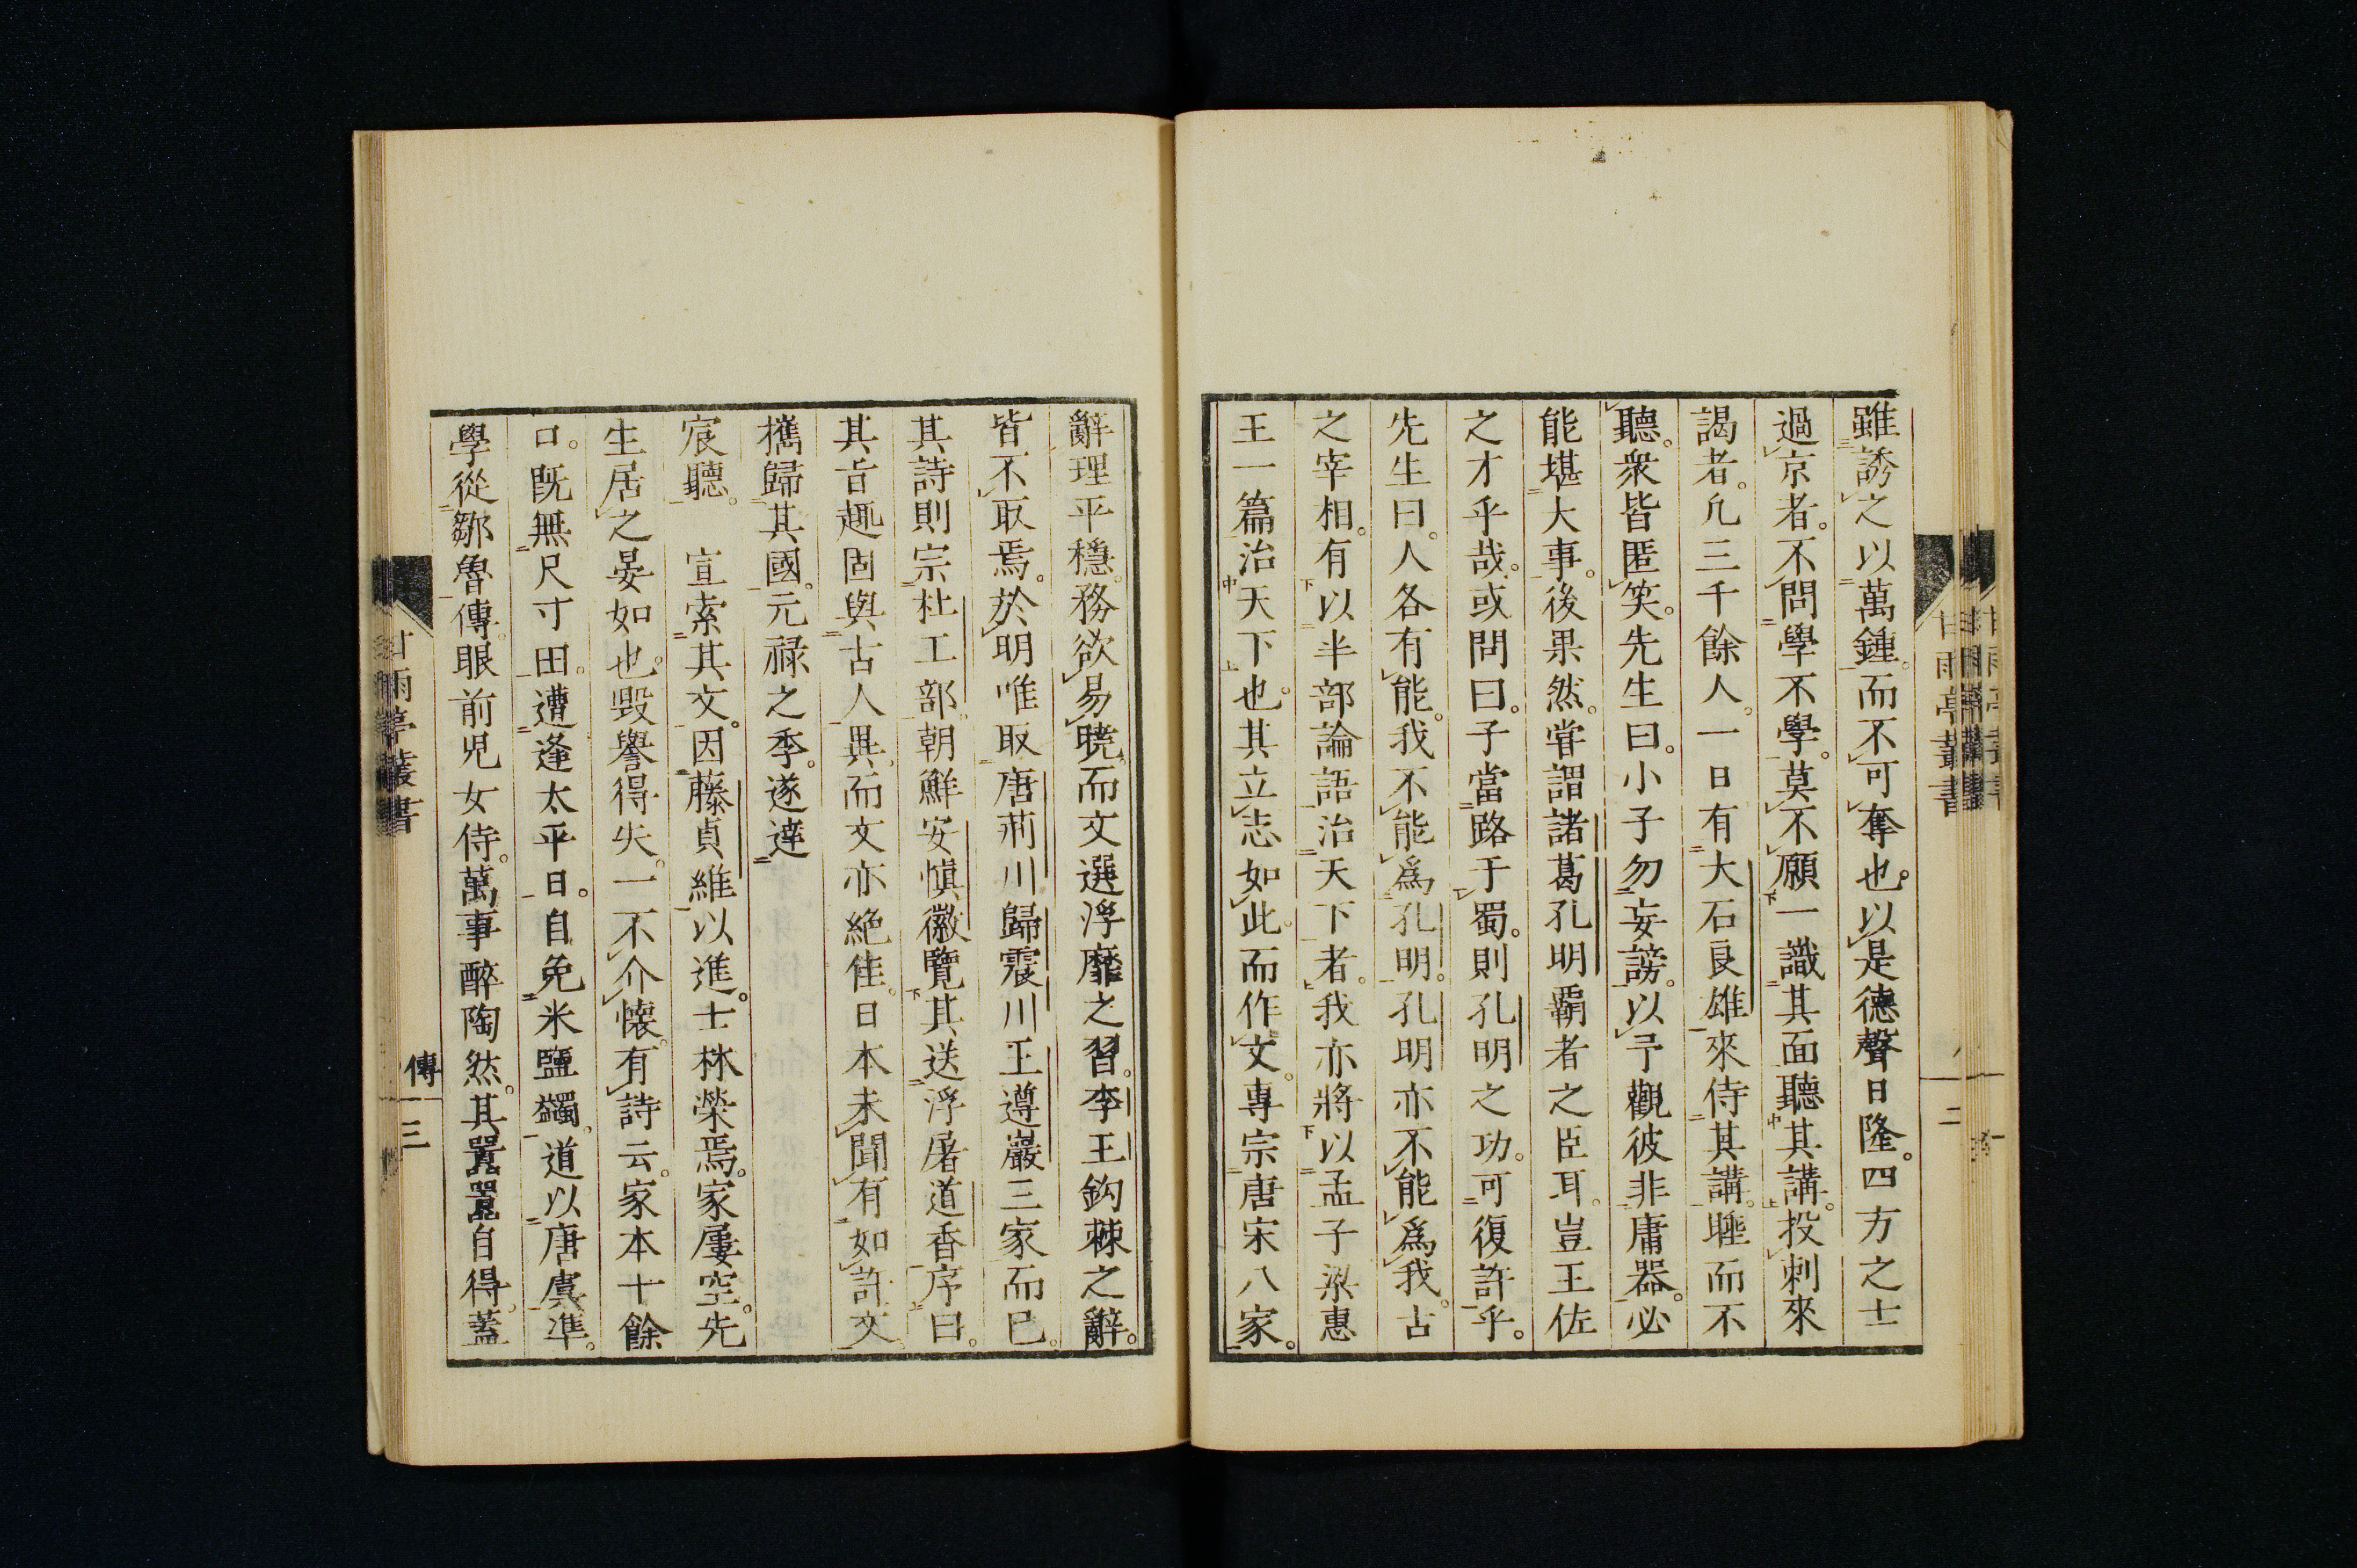 雖誘之以萬鍾。而不可奪也。以是德聲日隆。四方之士
過京者。不問學不學。莫不願一識其面聽其講。投刺來
謁者。凡三千餘人。一日有大石良雄來侍其講。睡而不
聽。衆皆匿笑。先生曰。小子勿妄謗。以予觀彼非庸器。必
能堪大事。後果然。嘗謂諸葛孔明覇者之臣耳。豈王佐
之才乎哉。或問曰。子當路于蜀。則孔明之功。可復許乎。
先生曰。人各有能。我不能爲孔明。孔明亦不能爲我。古
之宰相。有以半部論語治天下者。我亦將以孟子梁惠
王一篇治天下也。其立志如此。而作文。專宗唐宋八家。
辭理平穩。務欲易曉。而文選浮靡之習。李王鈎棘之辭。
皆不取焉。於明唯取唐荊川歸震川王遵巖三家而已。
其詩則宗杜工部。朝鮮安愼徽覽其送浮屠道香序曰。
其旨趣固與古人異。而文亦絶佳。日本未聞有如許文。
携歸其國。元禄之季。遂達
宸聽。 宣索其文。因藤貞維以進。士林榮焉。家屢空。先
生居之晏如也。毀譽得失。一不介懷。有詩云。家本十餘
口。既無尺寸田。遭逢太平日。自免米鹽蠲。道以唐虞準。
學從鄒魯傳。眼前児女侍。萬事醉陶然。其囂囂自得。蓋
甘雨亭叢書
傳
三
甘雨亭叢書
二